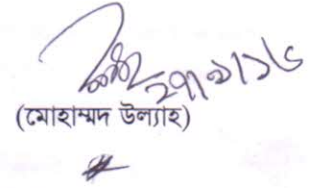 ২৭/৯/১৬
(মোহাম্মদ উল্যাহ)